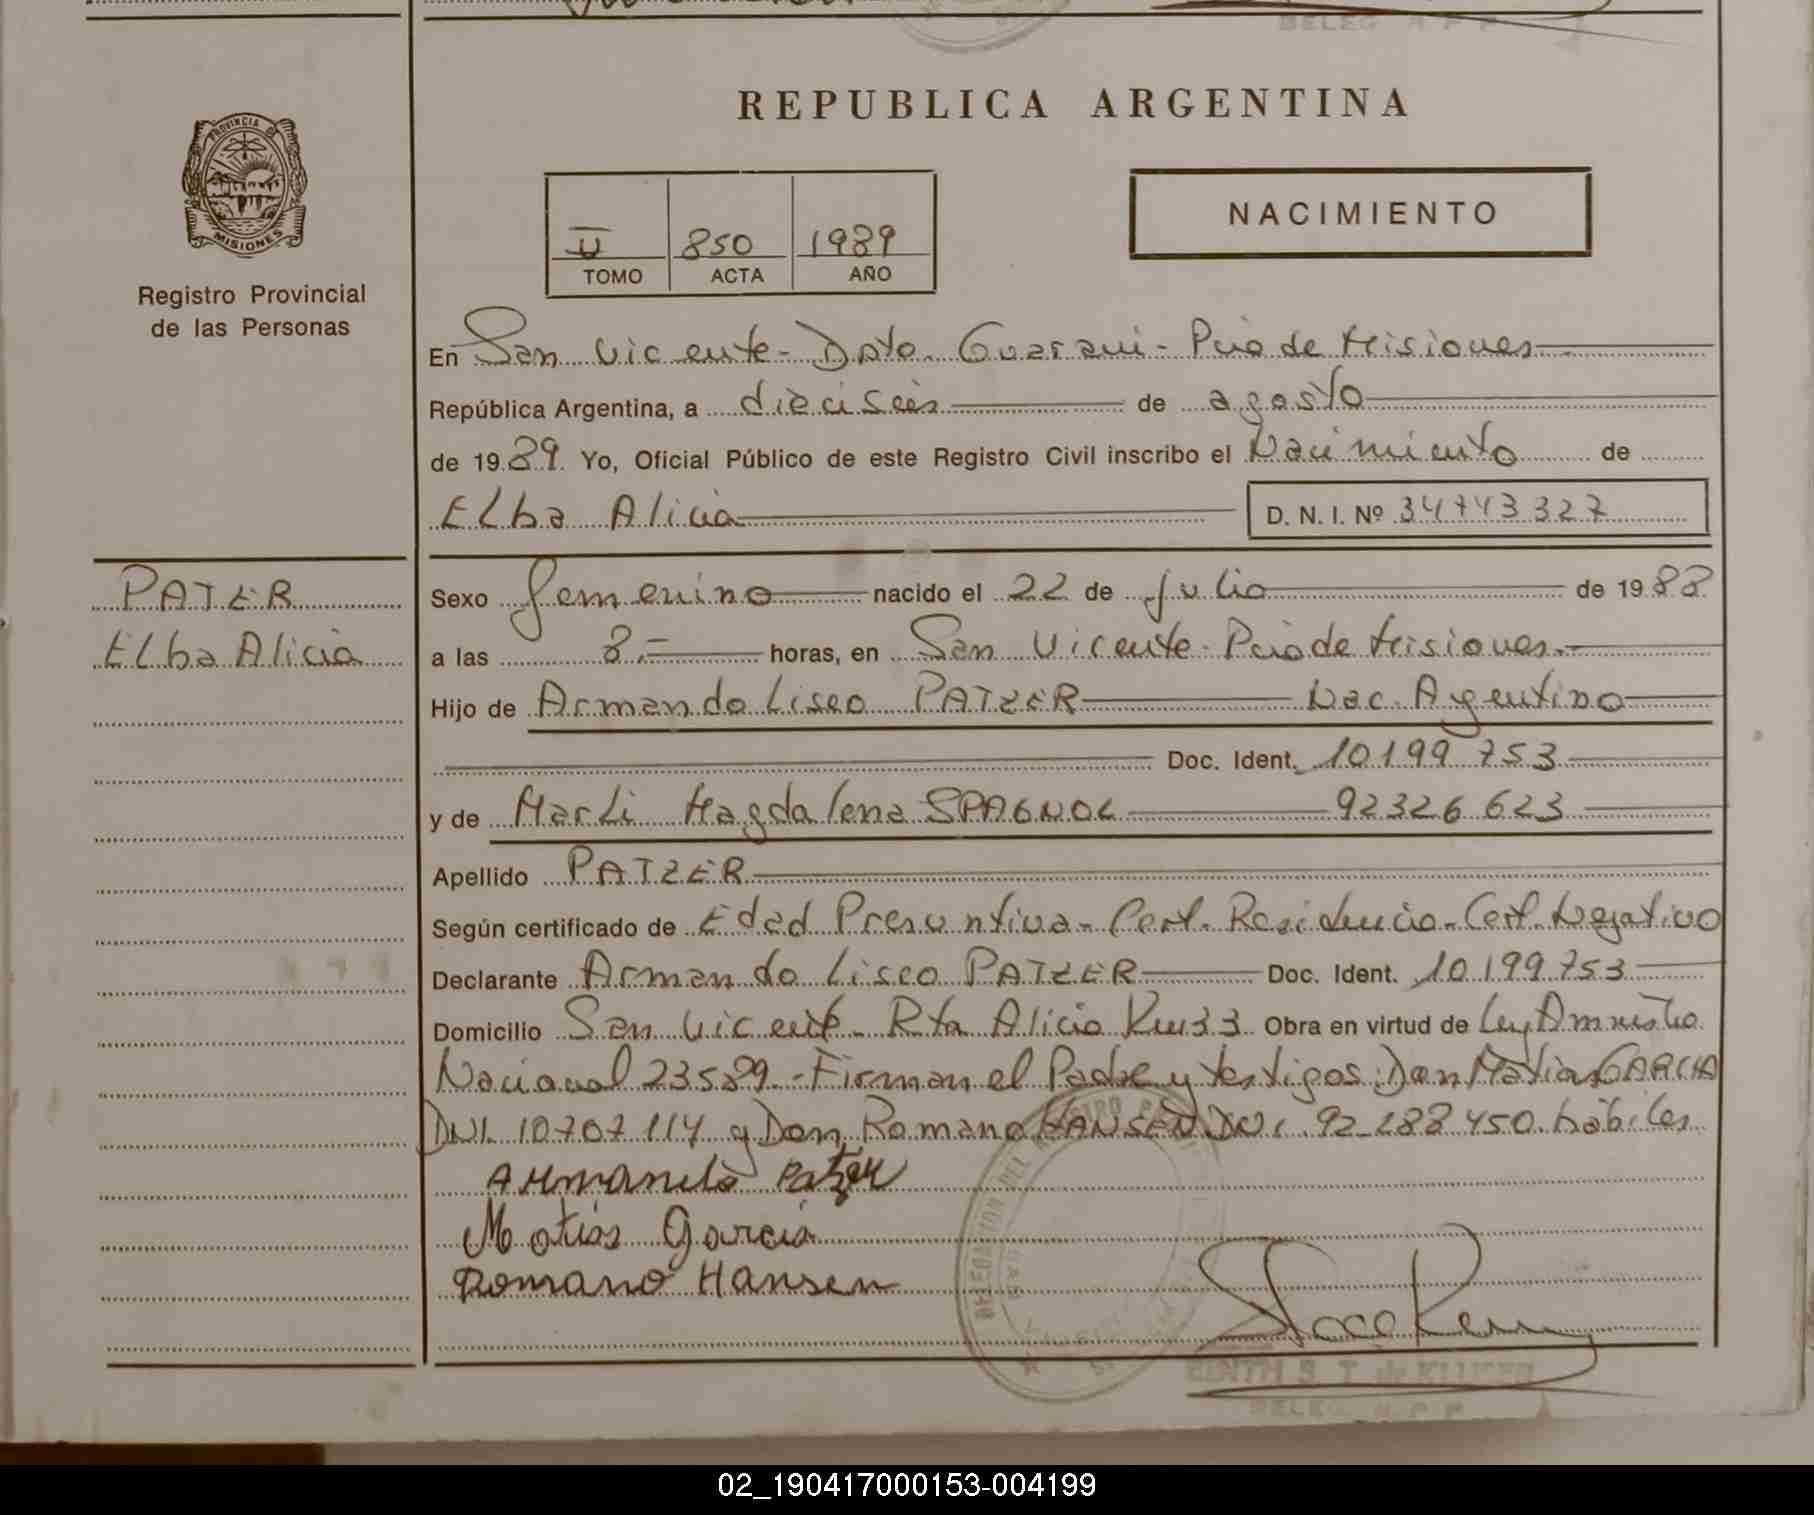 REPUBLICA ARGENTINA
PROVINCIA DE
MISIONES
Registro Provincial
de las Personas
II 850 1989
TOMO ACTA AÑO
NACIMIENTO
En San Vicente - Dpto. Guarani - Pcia de Misiones
República Argentina, a dieciseis de agosto
de 1989. Yo, Oficial Público de este Registro Civil inscribo el Nacimiento de
Elba Alicia D. N. I. Nº 34743327
PATZER
Elba Alicia
Sexo femenino nacido el 22 de julio de 1988
a las 8.= horas, en San Vicente - Pcia de Misiones.-
Hijo de Armando Liseo PATZER Nac. Argentino
Doc. Ident. 10199753
y de Marli Magdalena SPAGNOL 92326623
Apellido PATZER
Según certificado de Edad Presuntiva - Cert. Residencia - Cert. Negativo
Declarante Armando Liseo PATZER Doc. Ident. 10199753
Domicilio San Vicente - Rta Alicia Km 33 Obra en virtud de Ley Amnistia
Nacional 23589 - Firman el Padre y testigos: Don Matias GARCIA
DNI. 10707114 y Don Romano HANSEN DNI. 92.288450. hábiles
Armando Patzer
Matias Garcia
Romano Hansen
DELEGACION DEL
02_190417000153-004199